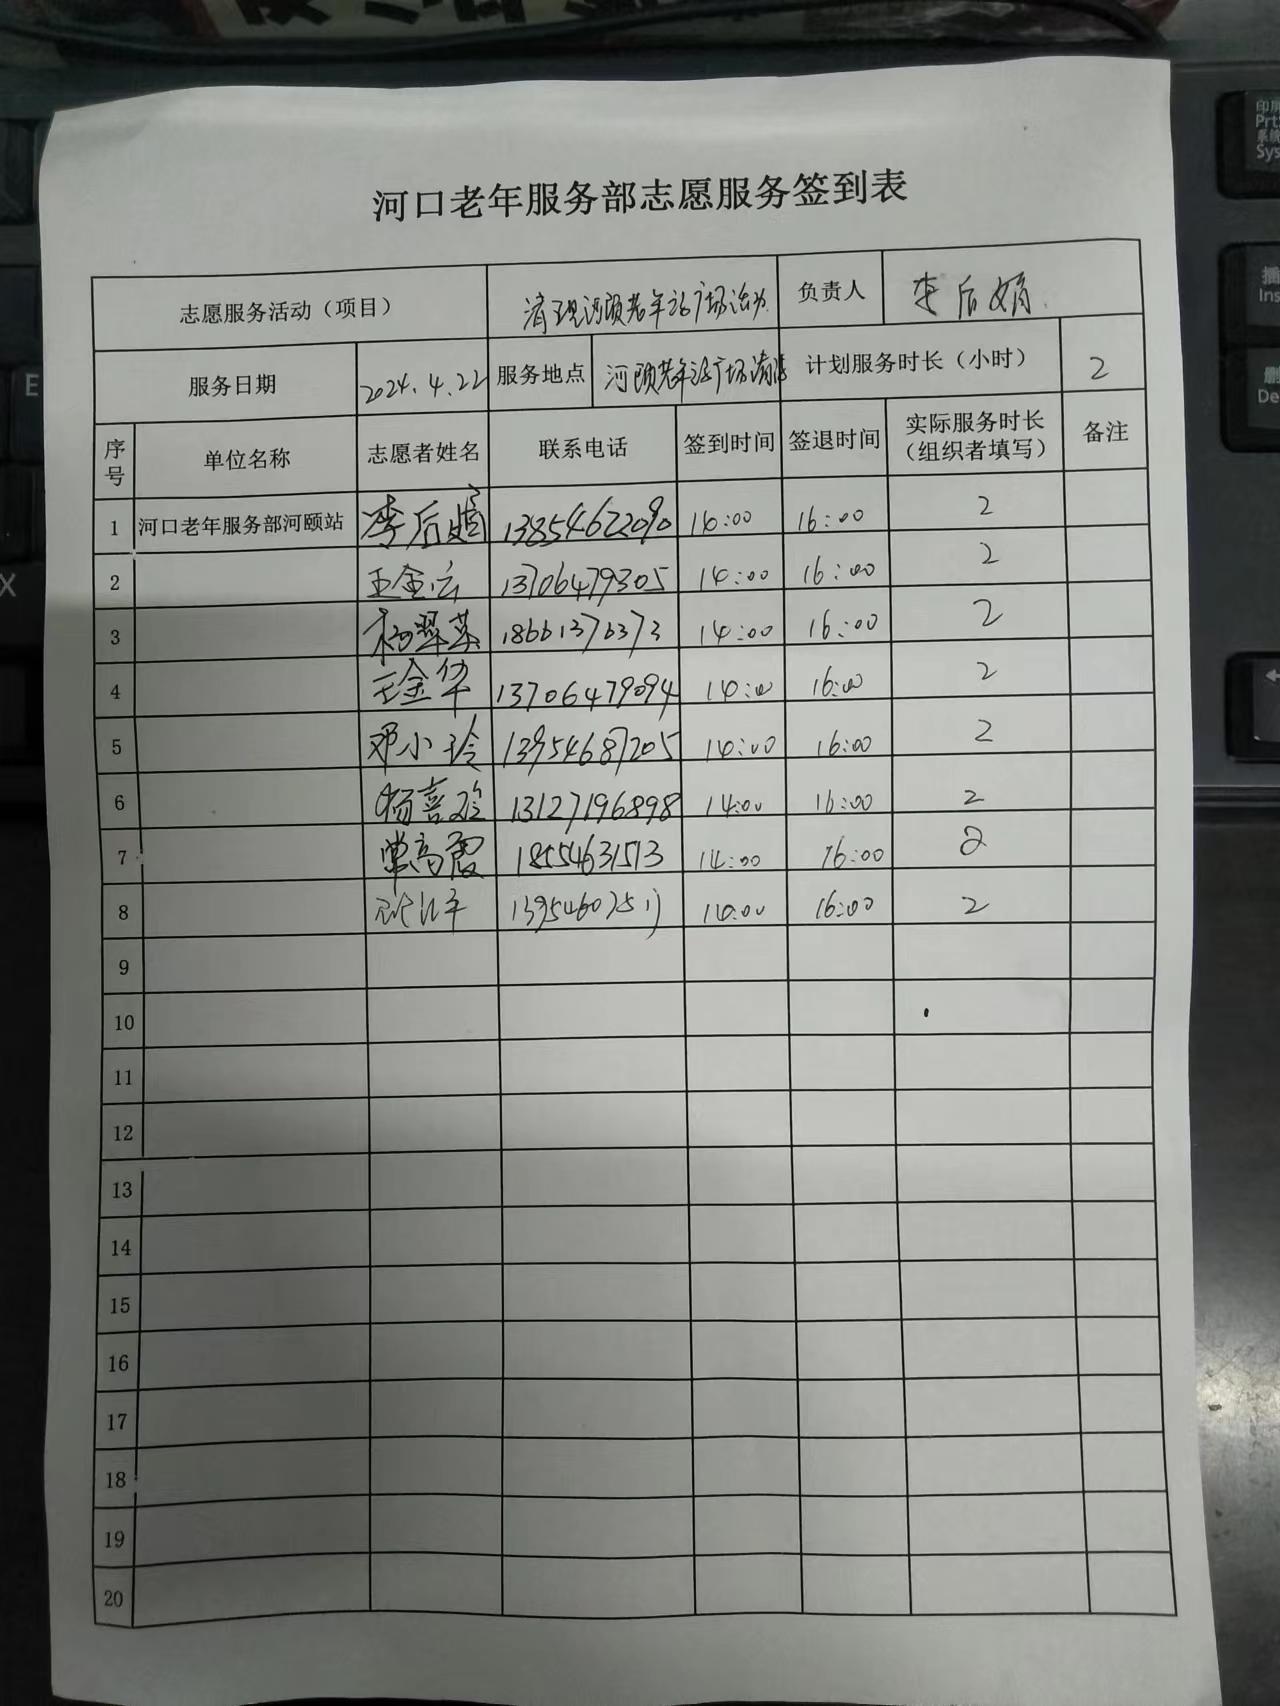 河口老年服务部志愿服务签到表
志愿服务活动（项目） 清理河颐老年站广场活动 负责人 李后娟
服务日期 2024.4.22 服务地点 河颐老年站广场清 计划服务时长（小时） 2
序号 单位名称 志愿者姓名 联系电话 签到时间 签退时间 实际服务时长（组织者填写） 备注
1 河口老年服务部河颐站 李后娟 13854622090 14:00 16:00 2
2 王金云 13706479305 14:00 16:00 2
3 杨翠英 18661376373 14:00 16:00 2
4 王金华 13706479094 14:00 16:00 2
5 邓小玲 13954687205 14:00 16:00 2
6 杨喜玲 13127196898 14:00 16:00 2
7 单高霞 18554631513 14:00 16:00 2
8 14:00 16:00 2
9
10
11
12
13
14
15
16
17
18
19
20
印屏
Prt
系统
Sys
插
Ins
删
De
E
X